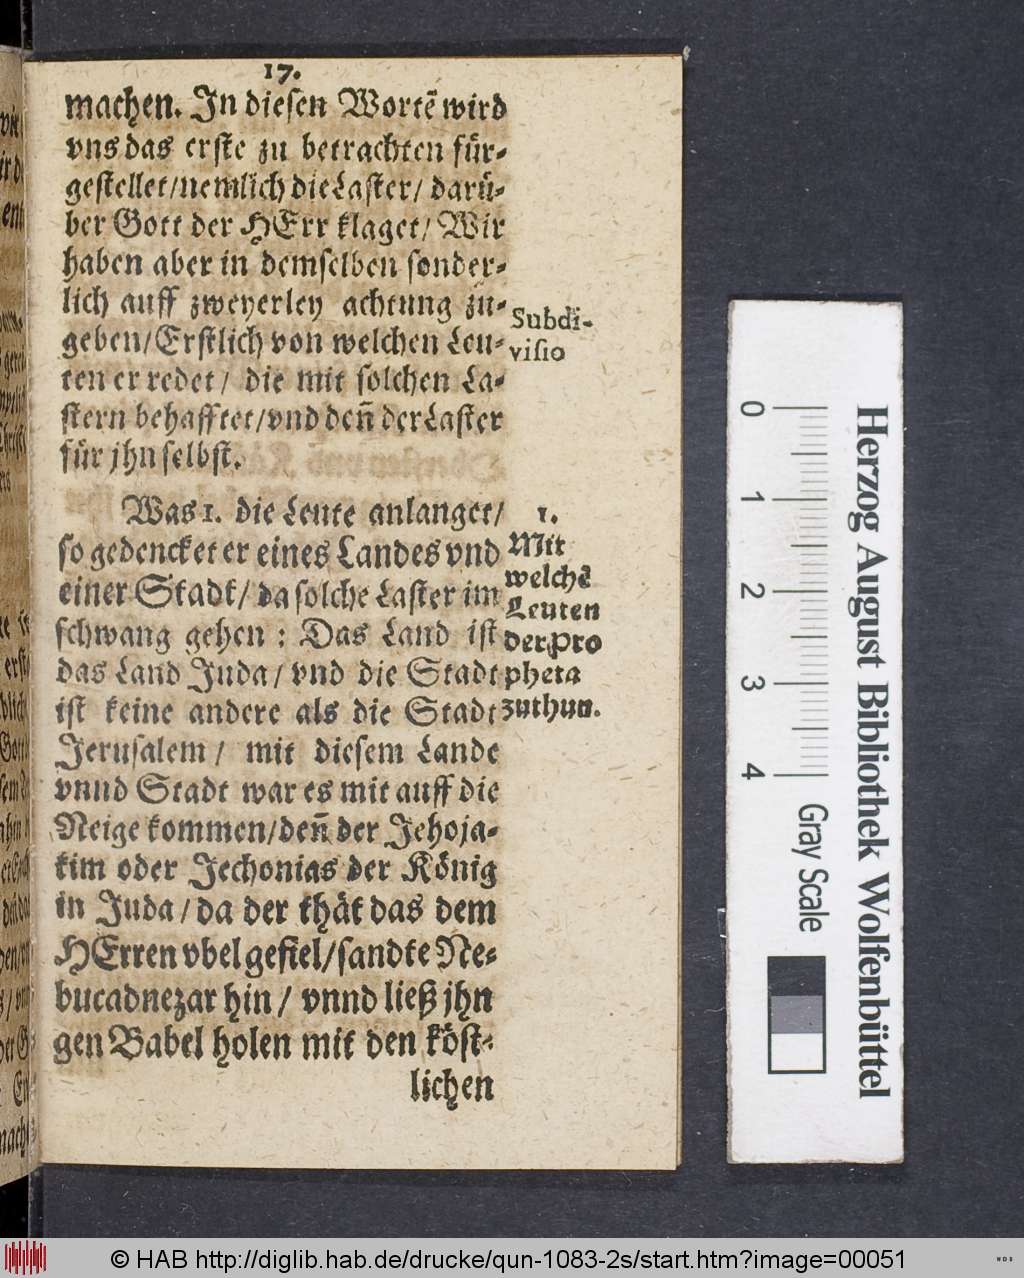 17.
machen. In diesen Wortẽ wird
vns das erste zu betrachten für-
gestellet/nemlich die Laster/ darü-
ber Gott der HErr klaget/ Wir
haben aber in demselben sonder-
lich auff zweyerley achtung zu-
geben/Erstlich von welchen Leu-
ten er redet/ die mit solchen La-
stern behafftet/vnd deñ der Laster
für jhn selbst.
Subdi-
visio
Was 1. die Leute anlanget/
so gedencket er eines Landes vnd
einer Stadt/ da solche Laster im
schwang gehen : Das Land ist
das Land Juda/ vnd die Stadt
ist keine andere als die Stadt
Jerusalem/ mit diesem Lande
vnnd Stadt war es mit auff die
Neige kommen/deñ der Jehoja-
kim oder Jechonias der König
in Juda/da der thät das dem
HErren vbel gefiel/sandte Ne-
bucadnezar hin/ vnnd ließ jhn
gen Babel holen mit den köst-
lichen
1.
Mit
welchẽ
Leuten
der Pro
pheta
zuthun.
0 1 2 3 4
Gray Scale
Herzog August Bibliothek Wolfenbüttel
© HAB http://diglib.hab.de/drucke/qun-1083-2s/start.htm?image=00051